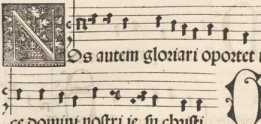 Nos autem gloriari oportet i
ce domini nostri ie su christi